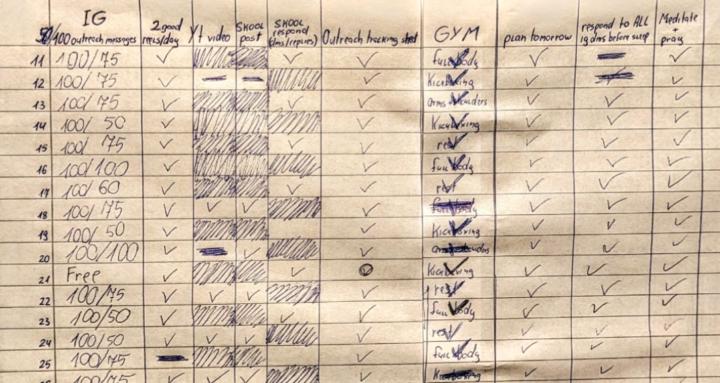 IG 2 good Yt video SKOOL SKOOL Outreach tracking sheet GYM plan tomorrow respond to ALL Meditate
50/100 outreach messages reels/day post respond (dms/replies) ig dms before sleep + pray
11 100/75 ✓ ✓ ✓ full body ✓ ✓
12 100/75 ✓ ✓ Kickboxing ✓ ✓
13 100/75 ✓ ✓ ✓ arms+shoulders ✓ ✓ ✓
14 100/50 ✓ ✓ Kickboxing ✓ ✓ ✓
15 100/75 ✓ ✓ ✓ rest ✓ ✓ ✓
16 100/100 ✓ ✓ full body ✓ ✓ ✓
17 100/60 ✓ ✓ ✓ rest ✓ ✓ ✓
18 100/75 ✓ ✓ ✓ ✓ full body ✓ ✓ ✓
19 100/50 ✓ ✓ ✓ Kickboxing ✓ ✓ ✓
20 100/100 ✓ ✓ ✓ ✓ ✓ ✓
21 Free ✓ ✓ Kickboxing ✓ ✓ ✓
22 100/75 ✓ ✓ ✓ ✓ rest ✓ ✓ ✓
23 100/50 ✓ ✓ ✓ full body ✓ ✓ ✓
24 100/50 ✓ ✓ ✓ ✓ rest ✓ ✓ ✓
25 100/75 ✓ ✓ full body ✓ ✓ ✓